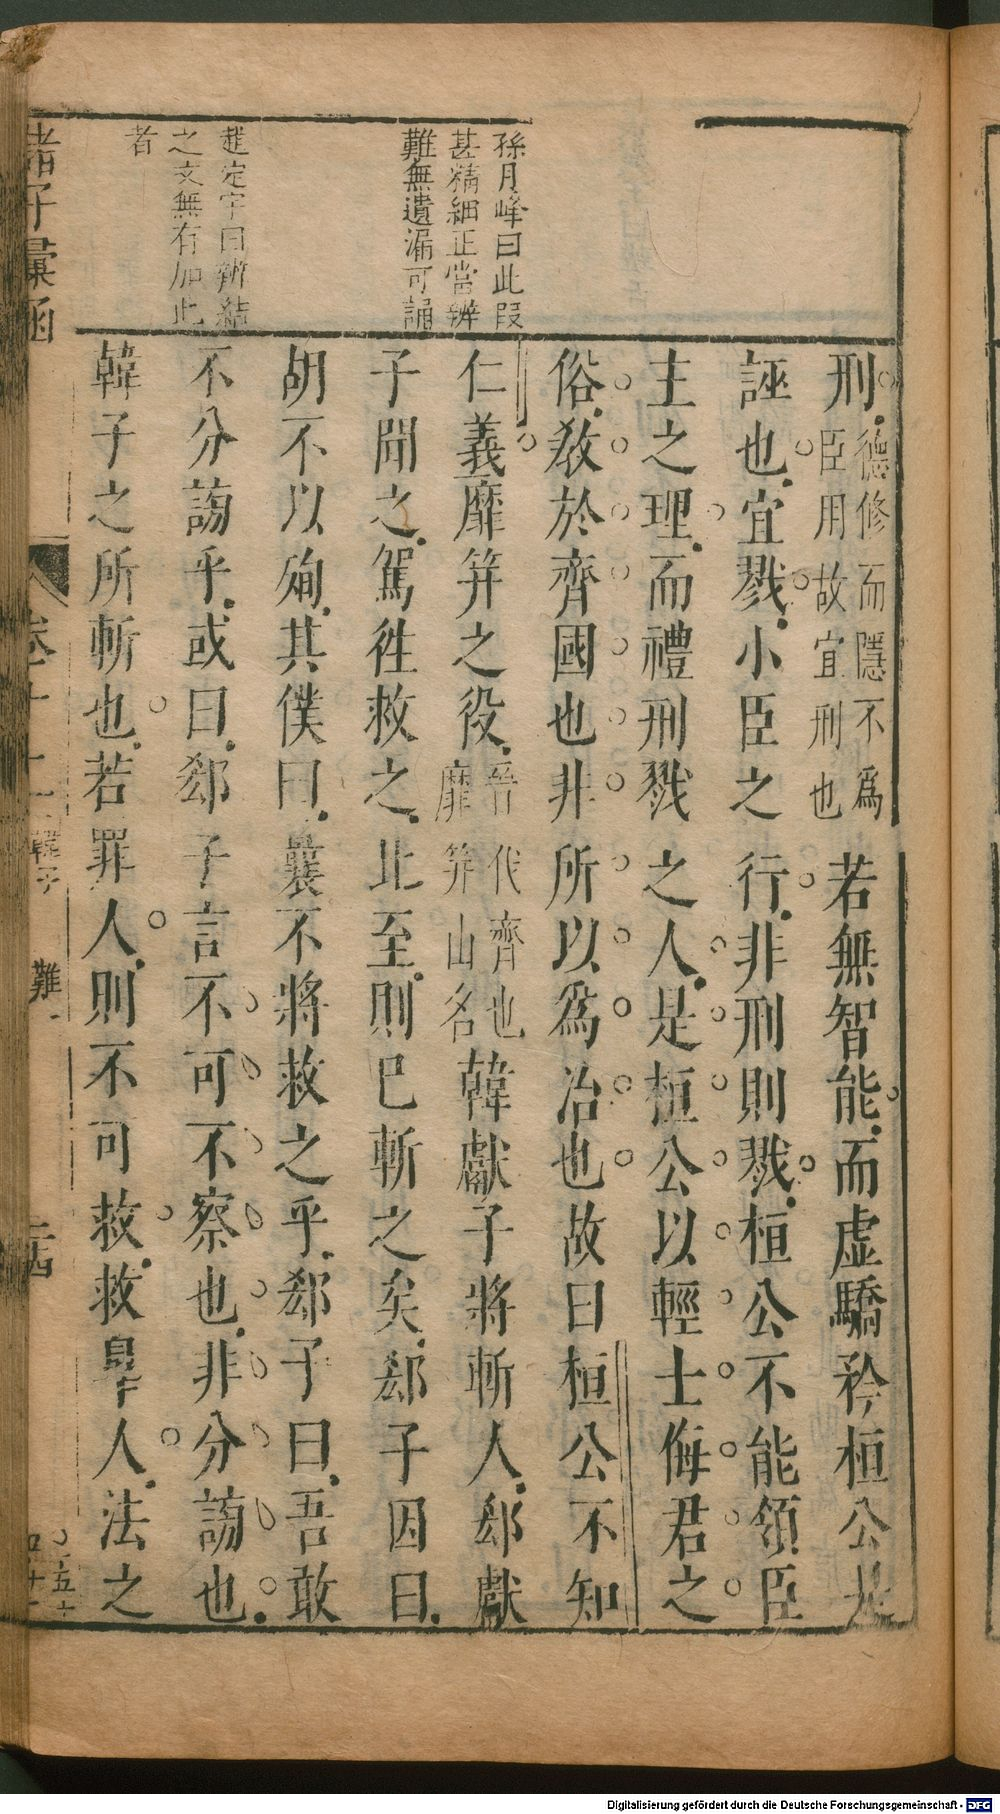 孫月峰曰此段
甚精細正當辨
難無遺漏可誦
趙定宇曰辨結
之文無有加此
者
刑德修而隱不爲
臣用故宜刑也若無智能而虛驕矜桓公是
誣也宜戮小臣之行非刑則戮桓公不能領臣
主之理而禮刑戮之人是桓公以輕士侮君之
俗教於齊國也非所以爲治也故曰桓公不知
仁義靡笄之役晉伐齊也
靡笄山名韓獻子將斬人郄獻
子聞之駕往救之比至則已斬之矣郄子因曰
胡不以殉其僕曰曩不將救之乎郄子曰吾敢
不分謗乎或曰郄子言不可不察也非分謗也
韓子之所斬也若罪人則不可救救辠人法之
諸子彙函
卷十二
韓子
難一
二十四
Digitalisierung gefördert durch die Deutsche Forschungsgemeinschaft - DFG